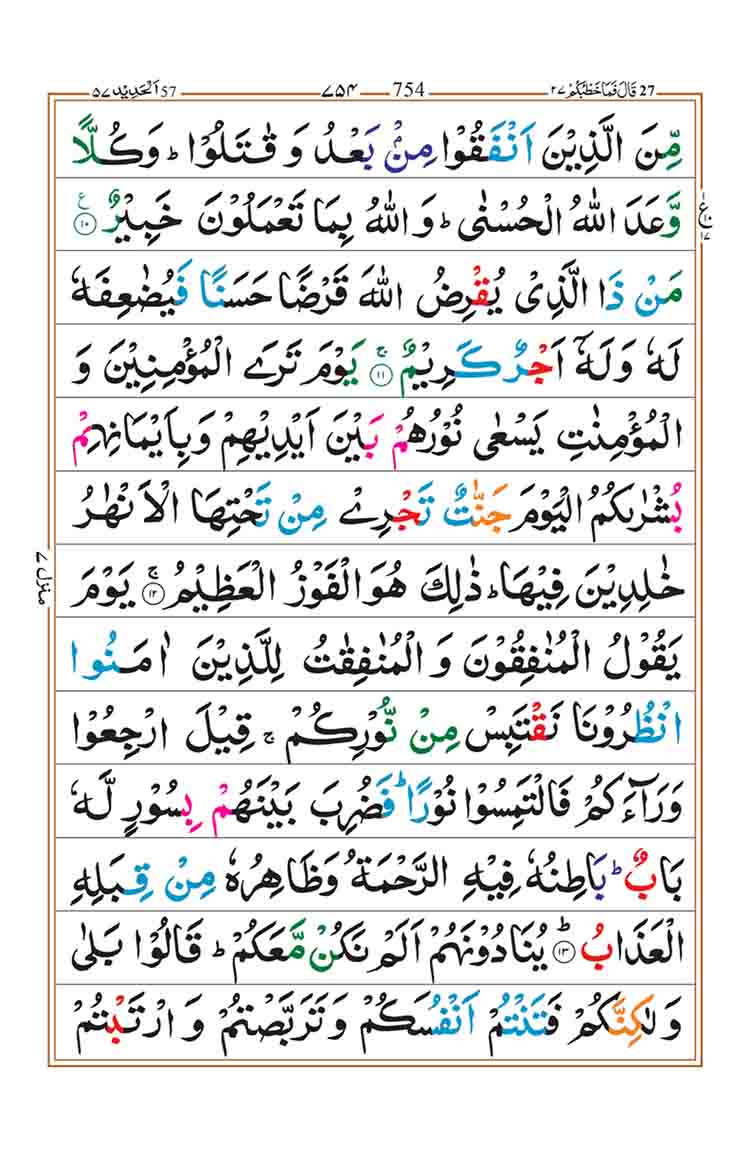 27 قَالَ فَمَا خَطْبُكُمْ ۲۷ 754 ۷۵۴ 57 اَلْحَدِيْد ۵۷
مِّنَ الَّذِيْنَ اَنْفَقُوْا مِنْۢ بَعْدُ وَ قٰتَلُوْا ؕ وَكُلًّا
وَّعَدَ اللّٰهُ الْحُسْنٰى ؕ وَ اللّٰهُ بِمَا تَعْمَلُوْنَ خَبِيْرٌ ۧ ۱۰
مَنْ ذَا الَّذِىْ يُقْرِضُ اللّٰهَ قَرْضًا حَسَنًا فَيُضٰعِفَهٗ
لَهٗ وَلَهٗۤ اَجْرٌ كَرِيْمٌ ۚ ۱۱ يَوْمَ تَرَى الْمُؤْمِنِيْنَ وَ
الْمُؤْمِنٰتِ يَسْعٰى نُوْرُهُمْ بَيْنَ اَيْدِيْهِمْ وَبِاَيْمَانِهِمْ
بُشْرٰىكُمُ الْيَوْمَ جَنّٰتٌ تَجْرِىْ مِنْ تَحْتِهَا الْاَنْهٰرُ
خٰلِدِيْنَ فِيْهَا ؕ ذٰلِكَ هُوَ الْفَوْزُ الْعَظِيْمُ ۚ ۱۲ يَوْمَ
يَقُوْلُ الْمُنٰفِقُوْنَ وَ الْمُنٰفِقٰتُ لِلَّذِيْنَ اٰمَنُوا
انْظُرُوْنَا نَقْتَبِسْ مِنْ نُّوْرِكُمْ ۚ قِيْلَ ارْجِعُوْا
وَرَآءَكُمْ فَالْتَمِسُوْا نُوْرًا ؕ فَضُرِبَ بَيْنَهُمْ بِسُوْرٍ لَّهٗ
بَابٌ ؕ بَاطِنُهٗ فِيْهِ الرَّحْمَةُ وَظَاهِرُهٗ مِنْ قِبَلِهِ
الْعَذَابُ ؕ ۱۳ يُنَادُوْنَهُمْ اَلَمْ نَكُنْ مَّعَكُمْ ؕ قَالُوْا بَلٰى
وَ لٰكِنَّكُمْ فَتَنْتُمْ اَنْفُسَكُمْ وَ تَرَبَّصْتُمْ وَ ارْتَبْتُمْ
ع ۱۰ ۱۷
منزل ۷